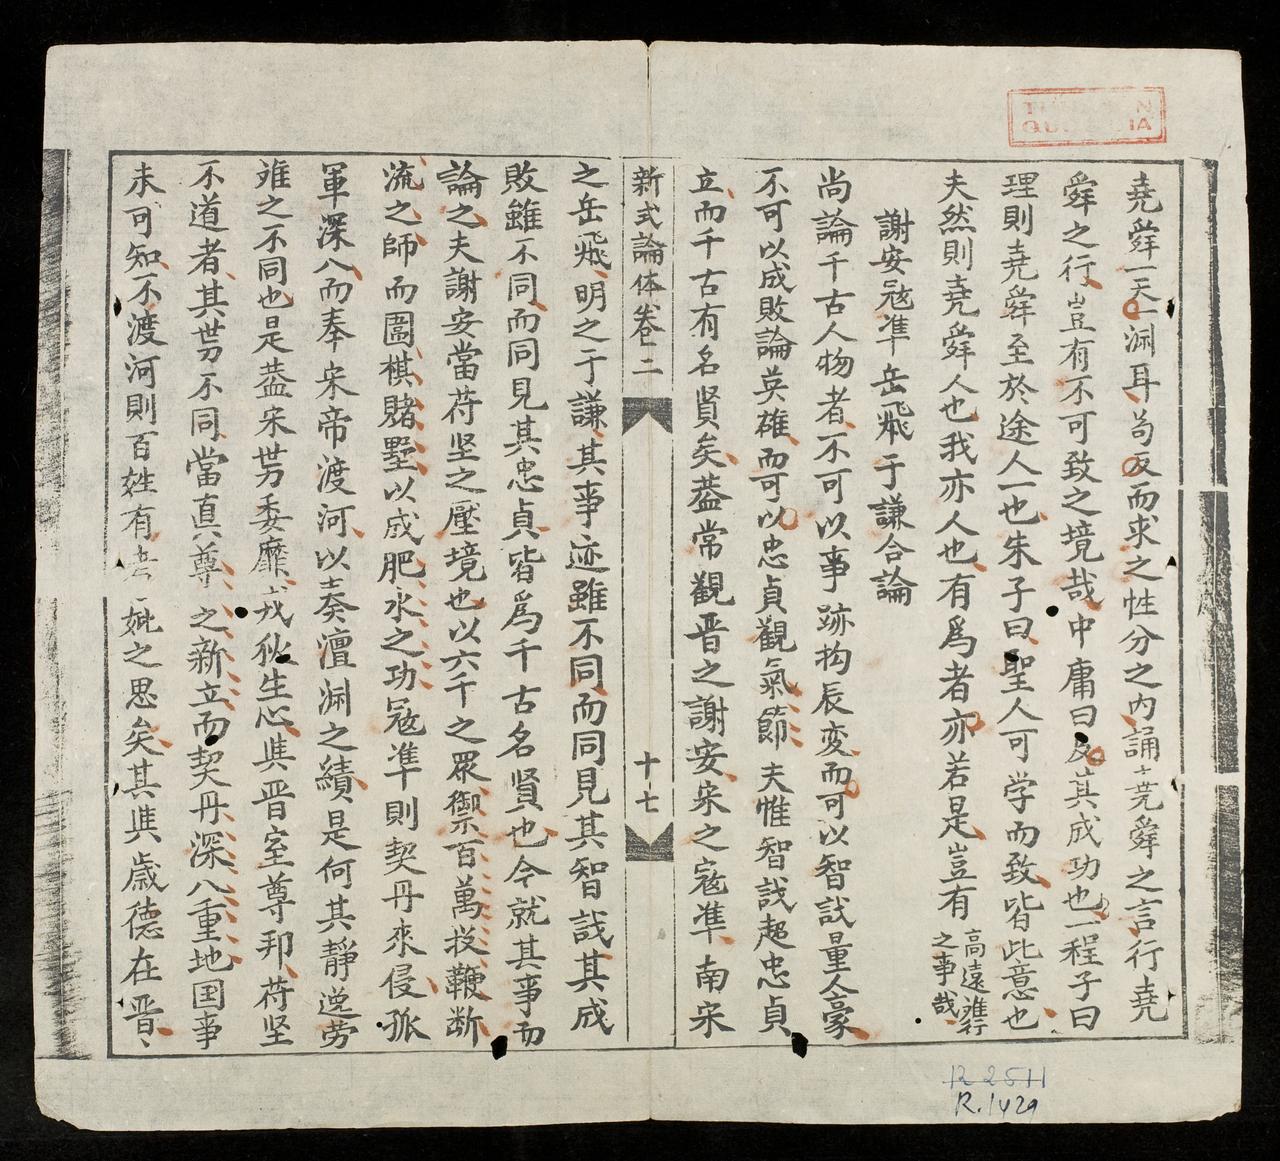 堯舜一天一渊耳苟反而求之性分之内誦堯舜之言行堯
舜之行豈有不可致之境哉中庸曰及其成功也一程子曰
理則堯舜至於途人一也朱子曰聖人可学而致皆此意也
夫然則堯舜人也我亦人也有爲者亦若是豈有高遠難行之事哉
謝安冦準岳飛于謙合論
尚論千古人物者不可以事跡拘辰変而可以智䛊量人豪
不可以成敗論英雄而可以忠貞觀氣節夫惟智䛊超忠貞
立而千古有名賢矣葢常觀晋之謝安宋之冦準南宋
新式論体卷二
十七
之岳飛明之于謙其事迹雖不同而同見其智䛊其成
敗雖不同而同見其忠貞皆爲千古名賢也今就其事而
論之夫謝安當苻坚之壓境也以六千之眾禦百萬投鞭断
流之師而圍棋賭墅以成肥水之功冦準則契丹來侵孤
軍深入而奉宋帝渡河以奏澶渊之績是何其靜逸劳
难之不同也是葢宋势委靡戎狄生心與晋室尊邦苻坚
不道者其势不同當真尊之新立而契丹深入重地国事
未可知不渡河則百姓有妣之思矣其與歲德在晋
TU QU IA
R 2511
R.1429